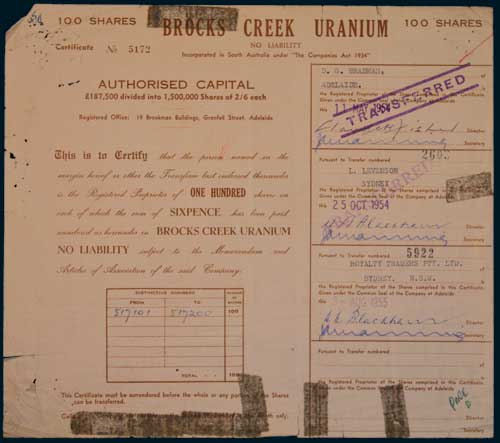 100 SHARES BROCKS CREEK URANIUM 100 SHARES
Certificate № 5172
NO LIABILITY
Incorporated in South Australia under "The Companies Act 1934"
AUTHORISED CAPITAL
£187,500 divided into 1,500,000 Shares of 2/6 each
Registered Office: 19 Brookman Buildings, Grenfell Street, Adelaide
This is to Certify that the person named in the
margin hereof or other the Transferee last endorsed thereunder
is the Registered Proprietor of ONE HUNDRED shares on
each of which the sum of SIXPENCE has been paid
numbered as hereunder in BROCKS CREEK URANIUM
NO LIABILITY subject to the Memorandum and
Articles of Association of the said Company.
DISTINCTIVE NUMBERS
NUMBER OF SHARES
FROM TO
517101 517200 100
TOTAL 100
This Certificate must be surrendered before the whole or any portion of the Shares
can be transferred.
ADELAIDE.
the Registered Proprietor of the Shares comprised in this Certificate.
Given under the Common Seal of the Company at Adelaide
11 MAY 1954
TRANSFERRED
Secretary
Pursuant to Transfer numbered
2603
L. LEVENSON
SYDNEY
the Registered Proprietor of the Shares comprised in this Certificate.
Given under the Common Seal of the Company at Adelaide
25 OCT 1954
Secretary
Pursuant to Transfer numbered
5922
ROYALTY TRADERS PTY. LTD.
SYDNEY. N.S.W.
the Registered Proprietor of the Shares comprised in this Certificate.
Given under the Common Seal of the Company at Adelaide
1955
Secretary
Pursuant to Transfer numbered
the Registered Proprietor of the Shares comprised in this Certificate
Given under the Common Seal of the Company at Adelaide
Director
Secretary